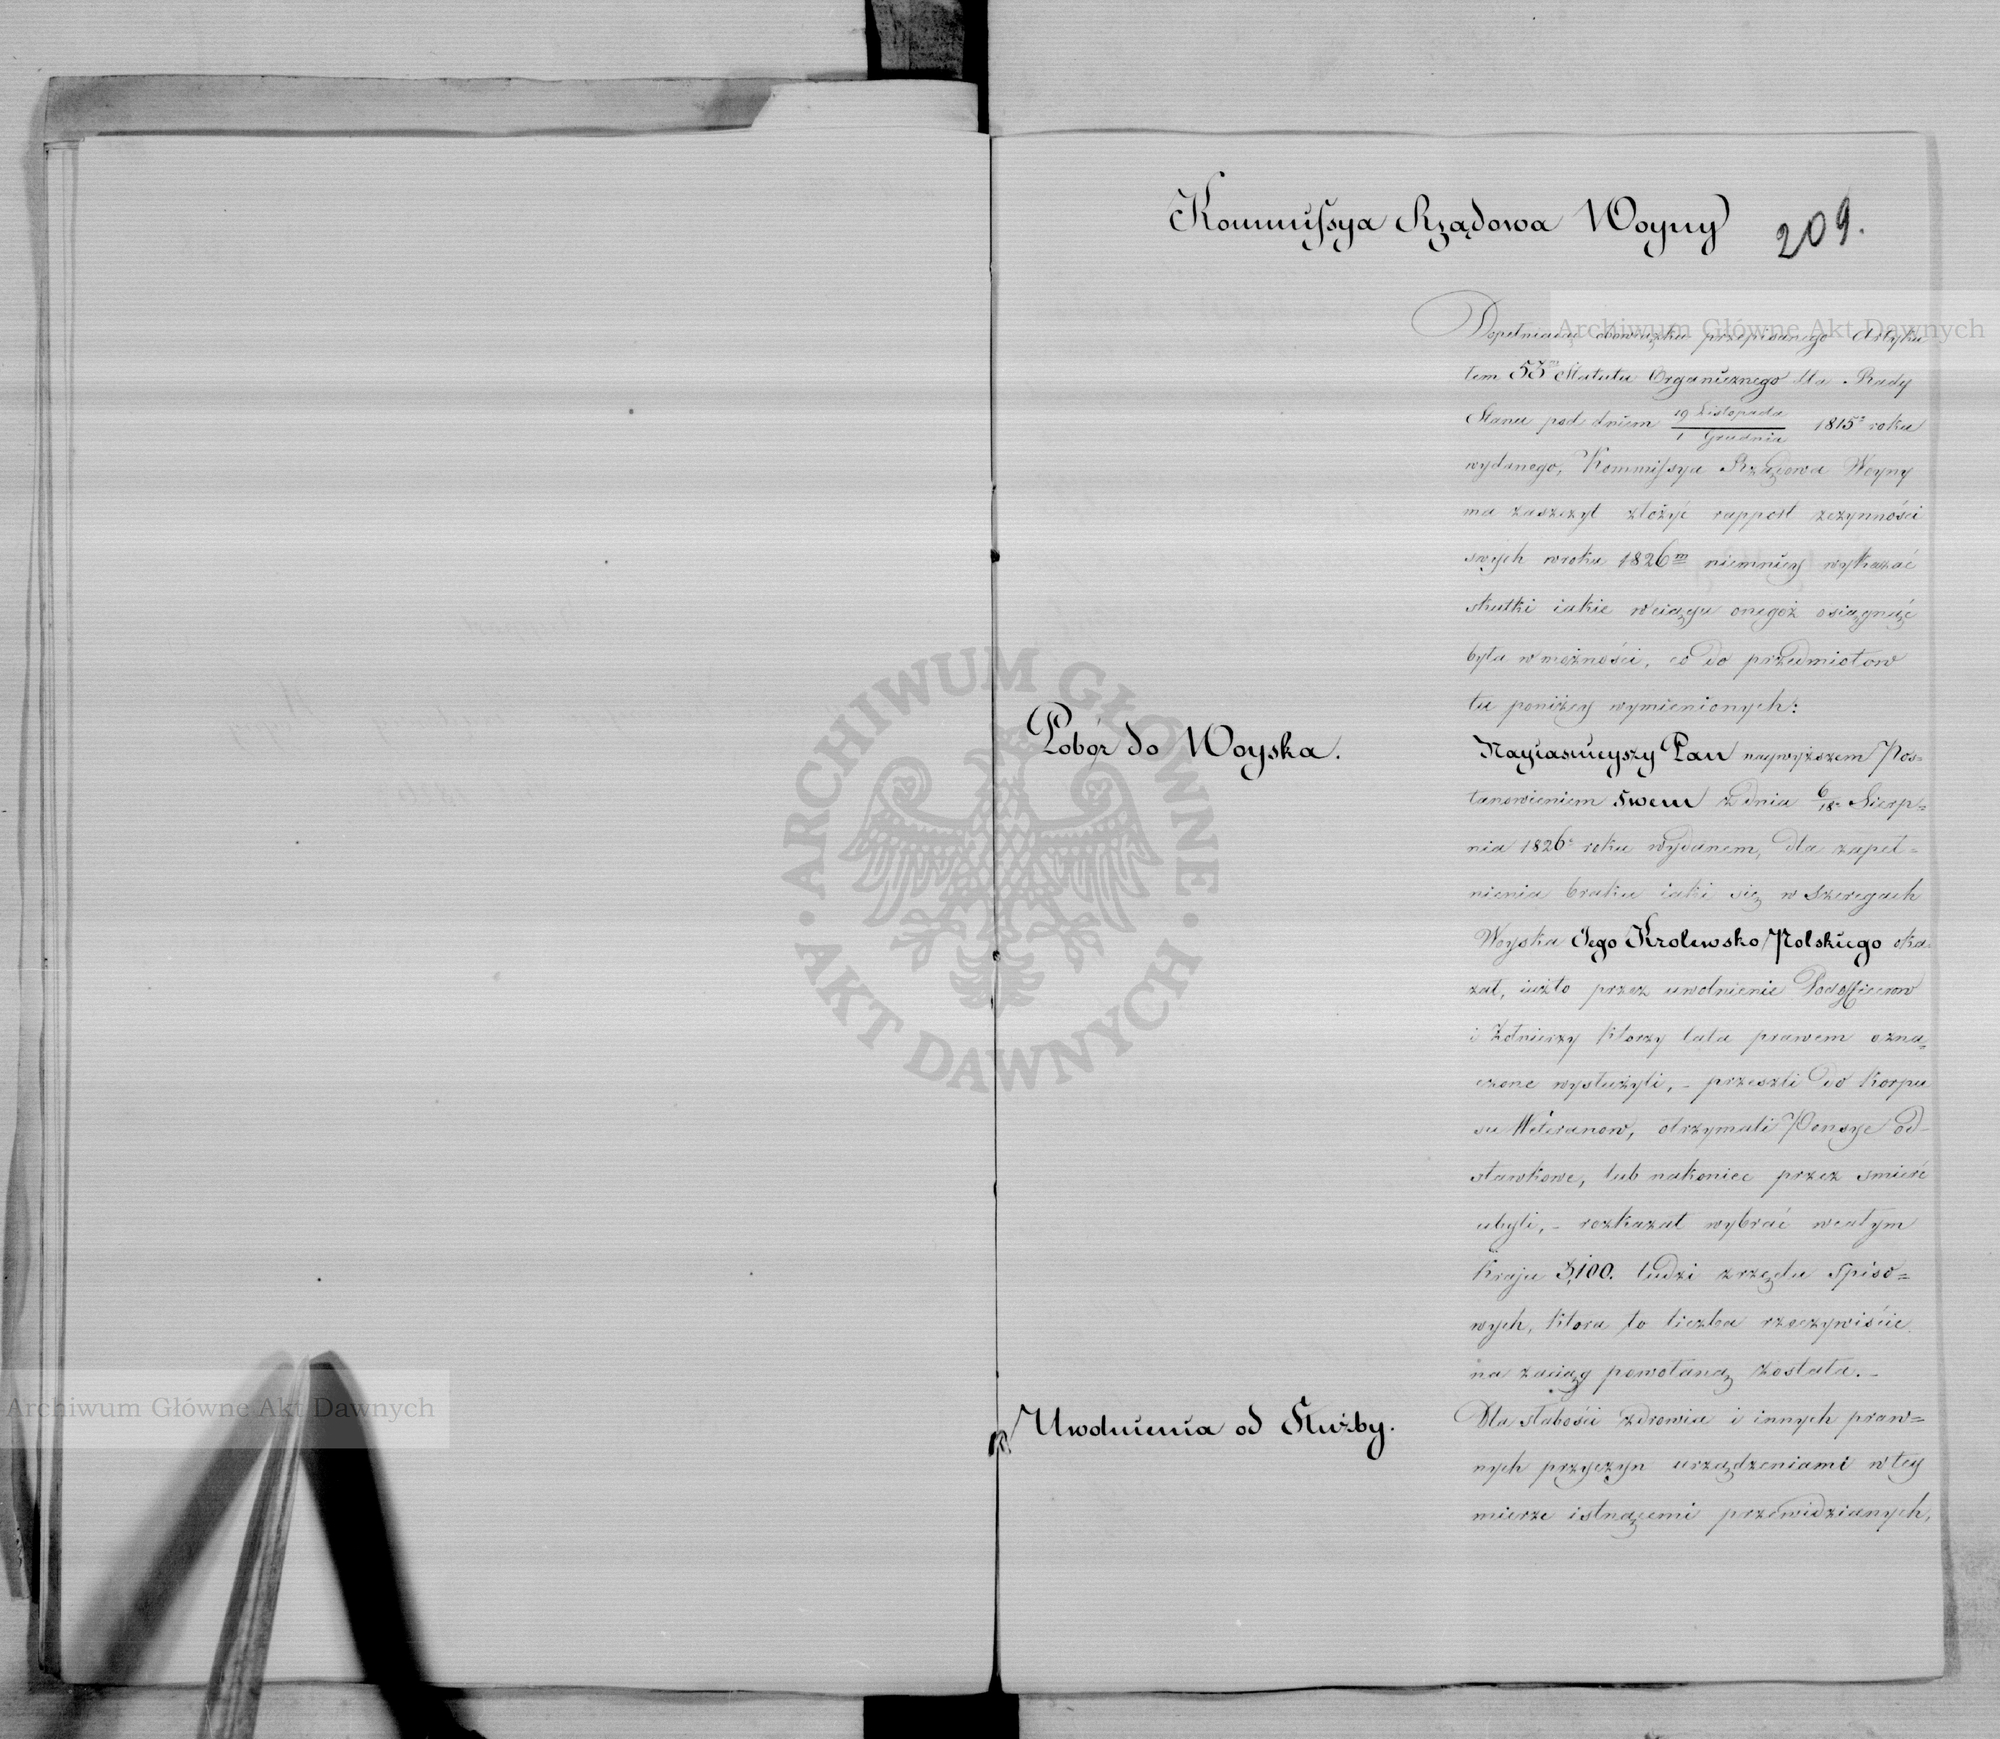 Kommissya Rządowa Woyny
209.
Dopełniaiąc obowiązku przepisanego Artyku
łem 53m Statutu Organicznego dla Rady
Stanu pod dniem 19 Listopada / 1 Grudnia 1815o roku
wydanego, Kommissya Rządowa Woyny
ma zaszczyt złożyć rapport zczynności
swych wroku 1826m niemniey wykazać
skutki iakie wciągu onegoż osiągnąć
była wmożności, co do przedmiotow
tu poniżey wymienionych:
Pobór do Woyska.
Nayiaśnieyszy Pan naywyższem Pos=
tanowieniem swem z dnia 6/18 Sierp=
nia 1826o roku wydanem, dla zapeł=
nienia braku iaki się w szeregach
Woyska Jego Krolewsko Polskiego oka=
zał, iużto przez uwolnienie Podofficerow
i Żołnierzy ktorzy lata prawem ozna=
czone wysłużyli, - przeszli do Korpu
su Weteranow, otrzymali Pensye od=
stawkowe, lub nakoniec przez smierć
ubyli, - rozkazał wybrać wcałym
Kraju 3,100. ludzi zrzędu spiso=
wych, ktora to liczba rzeczywiście
na zaciąg powołaną została. -
Uwolnienia od Służby.
Dla słabości zdrowia i innych praw=
nych przyczyn urządzeniami wtey
mierze istnącemi przewidzianych,
Archiwum Główne Akt Dawnych
Archiwum Główne Akt Dawnych
ARCHIWUM GŁÓWNE
· AKT DAWNYCH ·